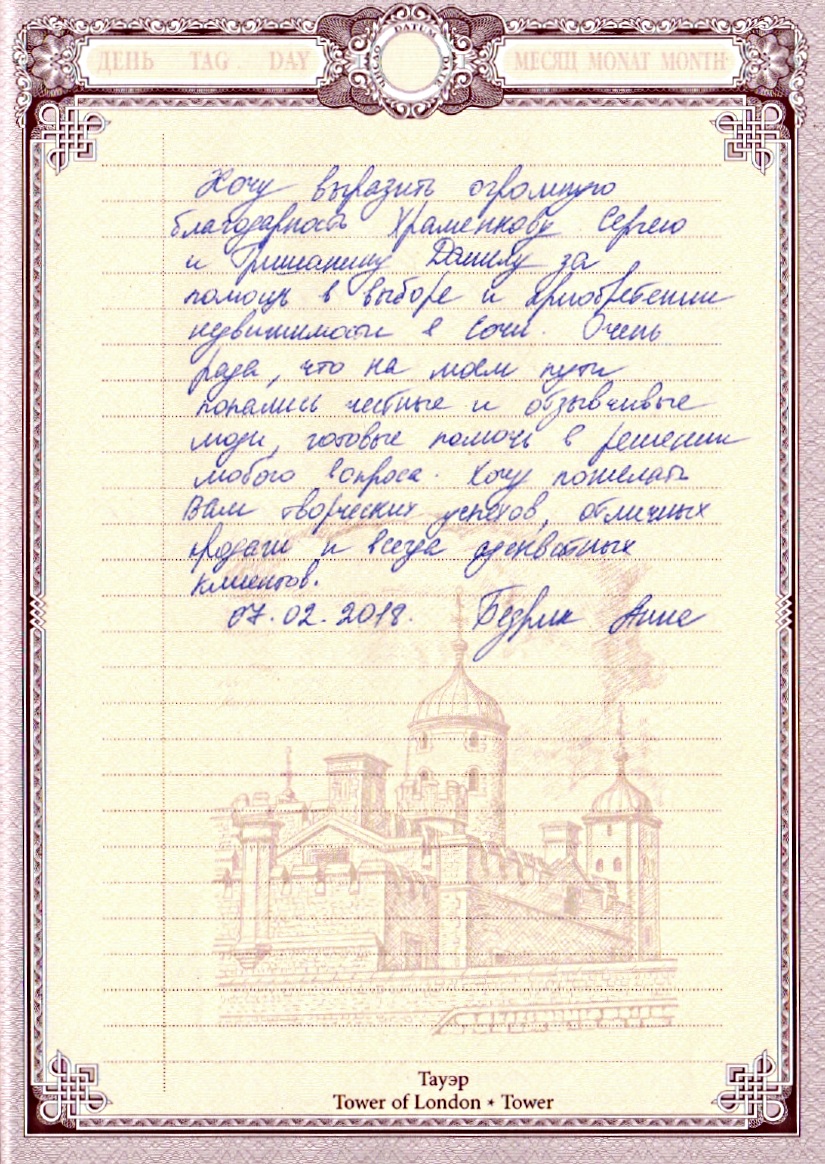 ДЕНЬ TAG. DAY DATUM МЕСЯЦ MONAT MONTH
Хочу выразить огромную
благодарность Храменкову Сергею
и Гришанину Данилу за
помощь в выборе и приобретении
недвижимости в Сочи. Очень
рада, что на моем пути
попались честные и отзывчивые
люди, готовые помочь в решении
любого вопроса. Хочу пожелать
Вам творческих успехов, отличных
продаж и всегда адекватных
клиентов.
07.02.2018. Анне
Тауэр
Tower of London • Tower